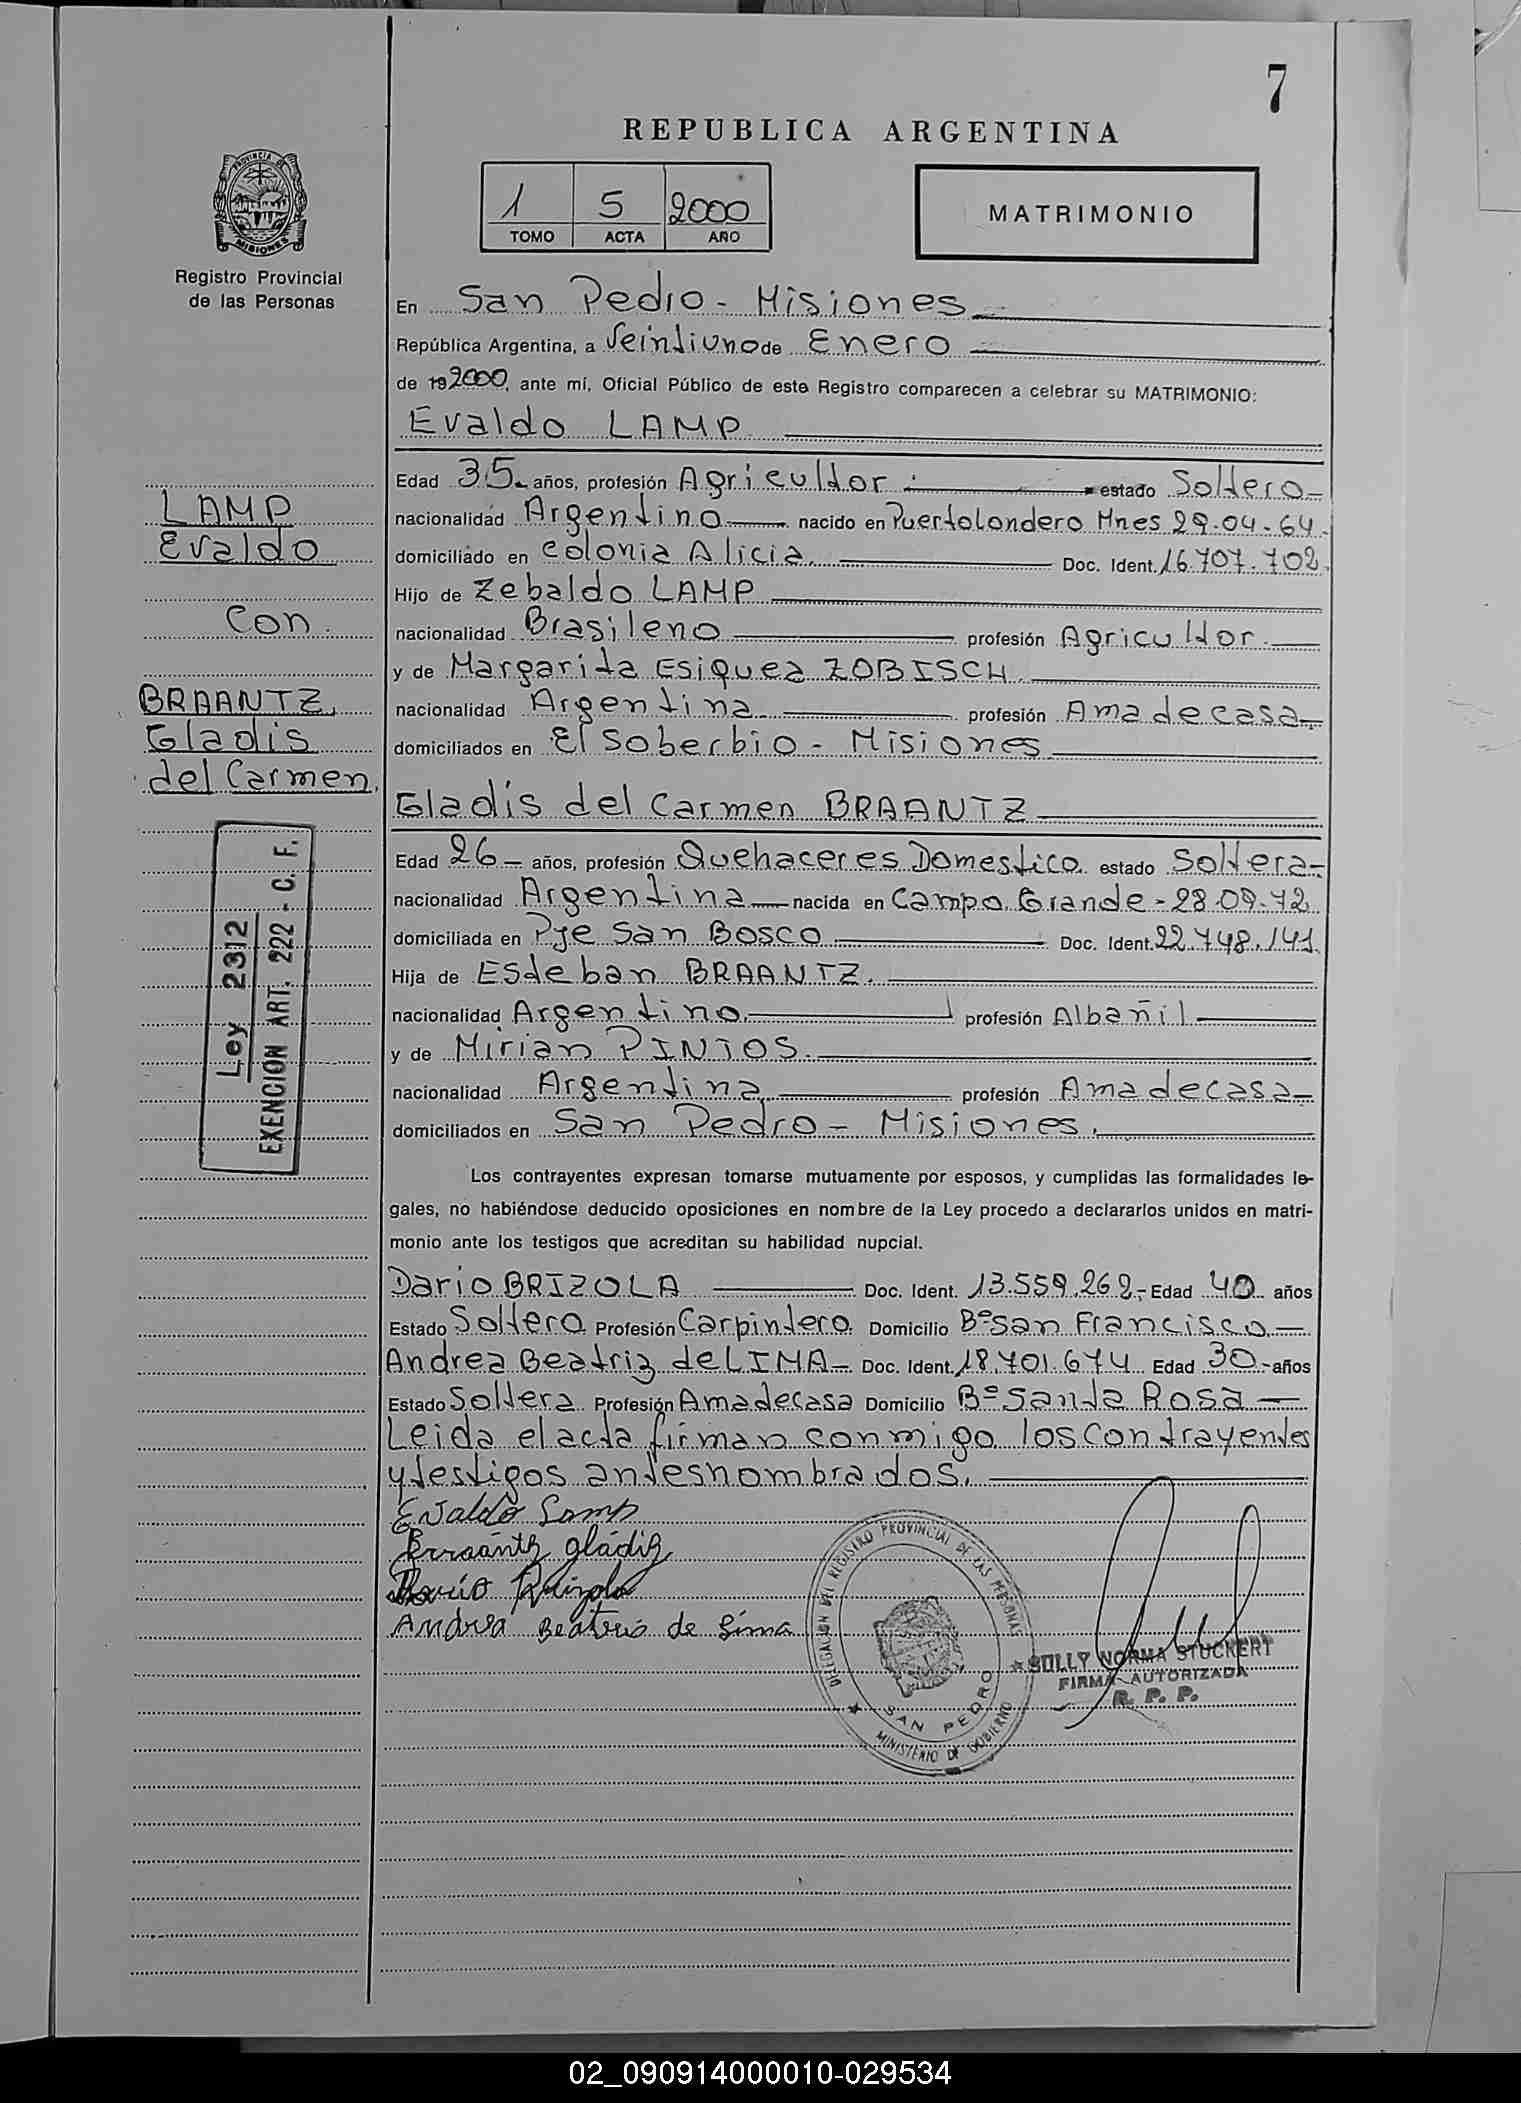 7
REPUBLICA ARGENTINA
1 5 2000
TOMO ACTA AÑO
MATRIMONIO
PROVINCIA DE
MISIONES
Registro Provincial
de las Personas
En San Pedro - Misiones
República Argentina, a Veintiuno de Enero
de 19 2000, ante mí, Oficial Público de este Registro comparecen a celebrar su MATRIMONIO:
Evaldo LAMP
Edad 35 años, profesión Agricultor estado Soltero
nacionalidad Argentino nacido en Puertolondero Mnes 29.04.64.
domiciliado en Colonia Alicia. Doc. Ident. 16.707.702.
Hijo de Zebaldo LAMP
nacionalidad Brasileno profesión Agricultor.
y de Margarita Esiquea ZOBISCH.
nacionalidad Argentina profesión Amadecasa
domiciliados en El Soberbio - Misiones
LAMP
Evaldo
Con.
BRAANTZ
Gladis
del Carmen.
Gladis del Carmen BRAANTZ
Edad 26 años, profesión Quehaceres Domestico. estado Soltera
nacionalidad Argentina nacida en Campo Grande - 28.09.72
domiciliada en Pje San Bosco Doc. Ident. 22.748.141.
Hija de Esteban BRAANTZ.
nacionalidad Argentino profesión Albañil
y de Mirian PINTOS.
nacionalidad Argentina profesión Amadecasa
domiciliados en San Pedro - Misiones.
Ley 2312
EXENCION ART. 222 - C. F.
Los contrayentes expresan tomarse mutuamente por esposos, y cumplidas las formalidades le-
gales, no habiéndose deducido oposiciones en nombre de la Ley procedo a declararlos unidos en matri-
monio ante los testigos que acreditan su habilidad nupcial.
Dario BRIZOLA Doc. Ident. 13.559.262.- Edad 40 años
Estado Soltero Profesión Carpintero. Domicilio Bº San Francisco
Andrea Beatriz de LIMA Doc. Ident. 18.701.674 Edad 30 años
Estado Soltera Profesión Amadecasa Domicilio Bº Santa Rosa
Leida el acta firman conmigo los contrayentes
y testigos antesnombrados.
Evaldo Lamp
Braantz gladiz
Dario Brizola
Andrea Beatris de Lima
DELEGACION DEL REGISTRO PROVINCIAL DE LAS PERSONAS
SAN PEDRO
MINISTERIO DE GOBIERNO
SULLY NORMA STUCKERT
FIRMA AUTORIZADA
R. P. P.
02_090914000010-029534